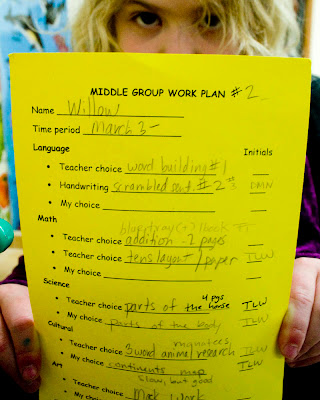 MIDDLE GROUP WORK PLAN #2
Name Willow
Time period March 3-
Language Initials
• Teacher choice word building #1
• Handwriting scrambled sent. #2 #3 DMN
• My choice
Math
(+) 1 book
• Teacher choice addition - 2 pages
• Teacher choice tens layout / paper TLW
• My choice
Science
4 pgs
• Teacher choice parts of the horse TLW
• My choice parts of the body TLW
Cultural manatees
• Teacher choice 3 word animal research TLW
• My choice continents map TLW
Art slow, but good
• Teacher choice Mask Work